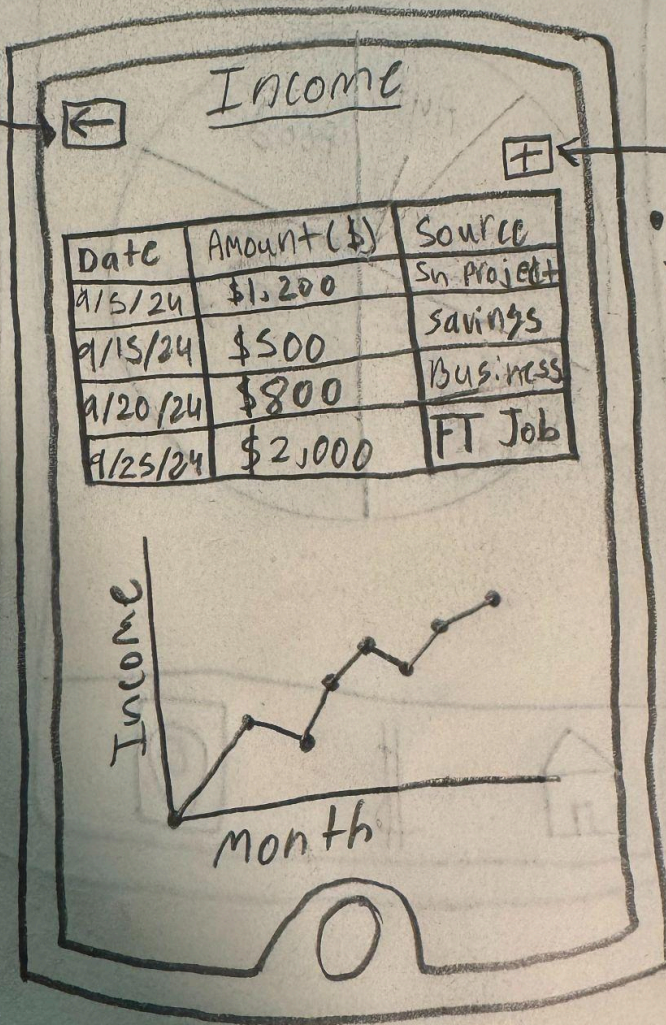 Income
←
+
Date Amount ($) Source
9/5/24 $1,200 Sn project
9/15/24 $500 savings
9/20/24 $800 Business
9/25/24 $2,000 FT Job
Income
Month